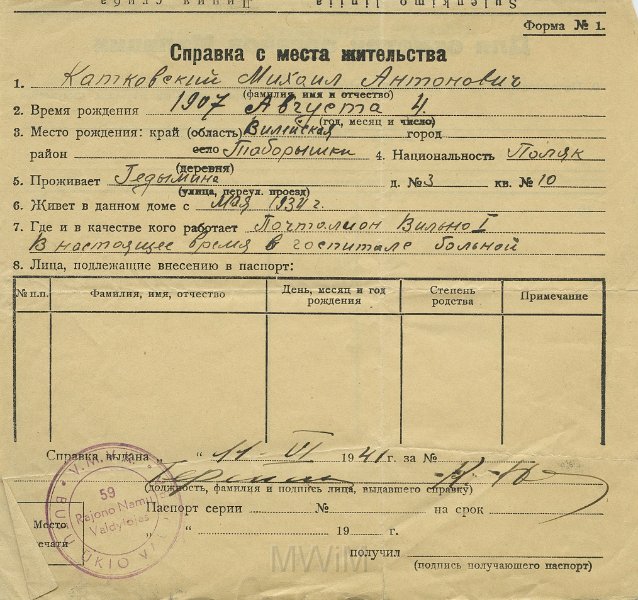 Sulenkimo linija Линия сгиба
Форма № 1.
Справка с места жительства
1. Катковский Михаил Антонович
(фамилия, имя и отчество)
2. Время рождения 1907 Августа 4
(год, месяц и число)
3. Место рождения: край (область) Вилейская город
район село Таборышки 4. Национальность Поляк
(деревня)
5. Проживает Гедымина д. № 3 кв. № 10
(улица, переул. проезд)
6. Живет в данном доме с Мая 1930 г.
7. Где и в качестве кого работает Почталион Вильно I
В настоящее время в госпитале больной
8. Лица, подлежащие внесению в паспорт:
№ п.п. Фамилия, имя, отчество День, месяц и год рождения Степень родства Примечание
Справка выдана „ “ 11-VI 1941 г. за №
(должность, фамилия и подпись лица, выдавшего справку)
Паспорт серии № на срок
Место печати „ “ 19 г.
получил
(подпись получающего паспорт)
V.M.V.K.
59
Rajono Namų
Valdytojas
BUTŲ ŪKIO
MWiMT